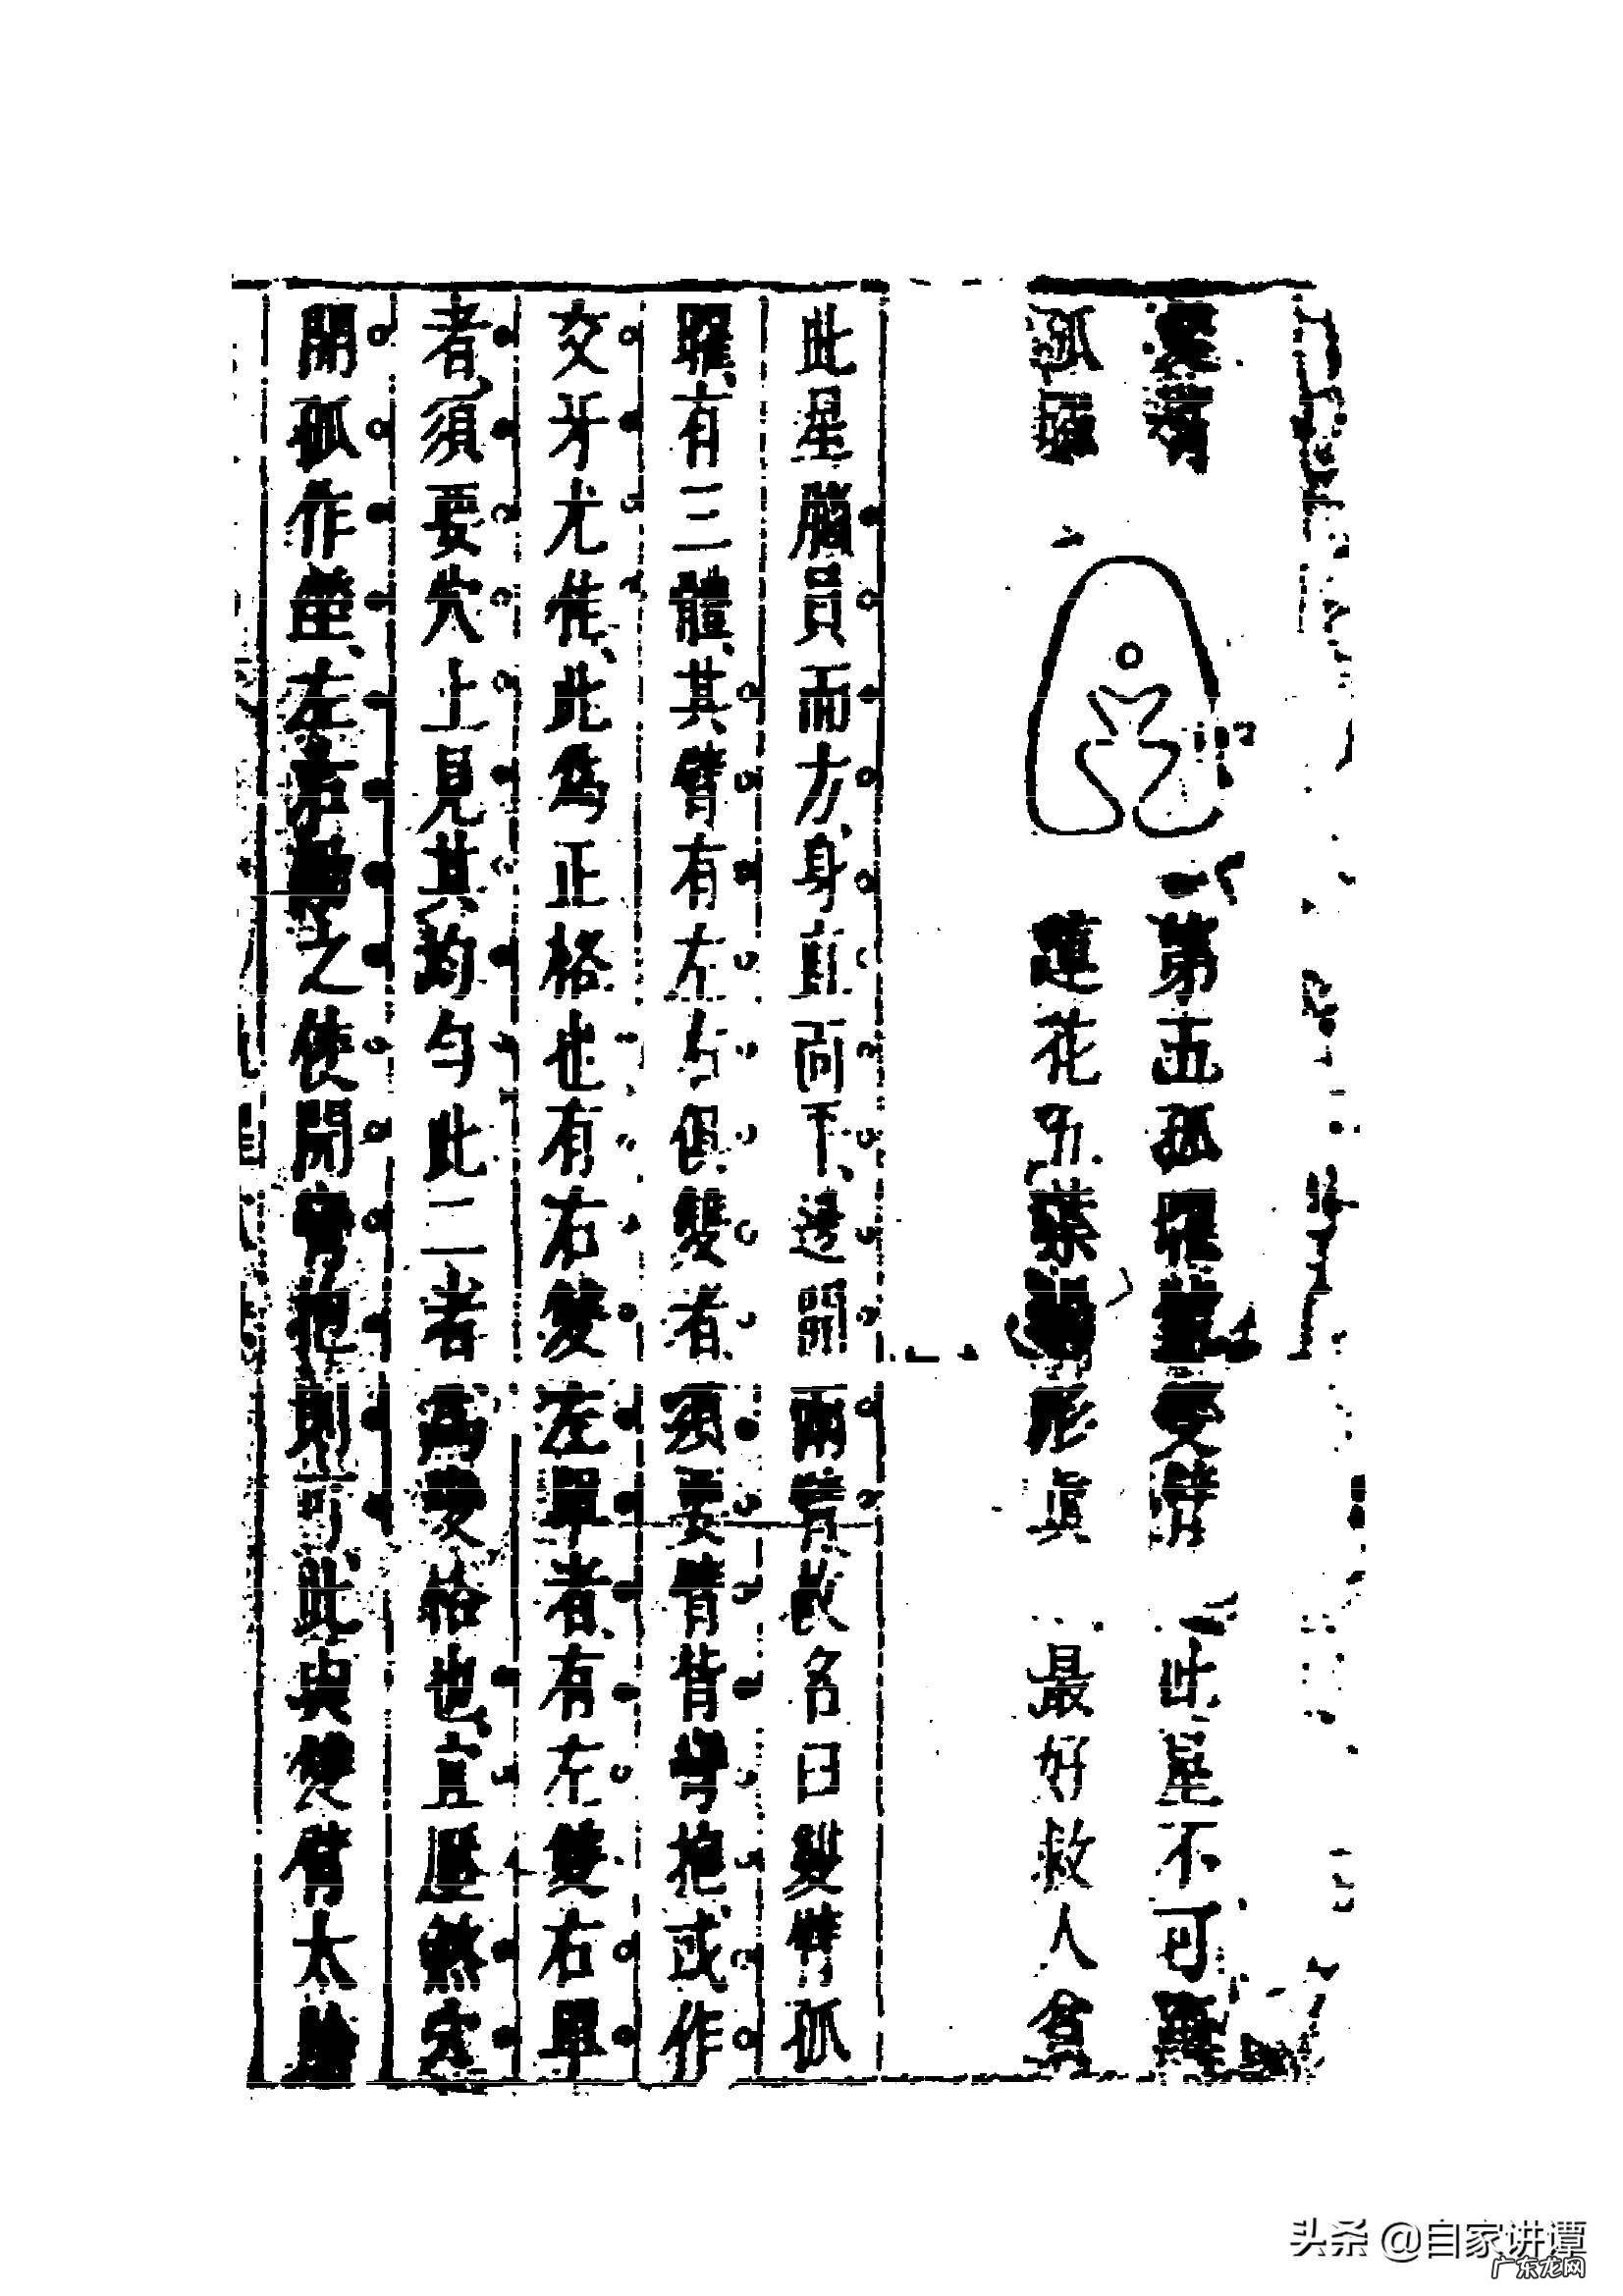 雙臂
孤曜
第五孤曜號雙臂
蓮花五葉形真
此星不可
最好救人貧
此星腦員而方身直向下邊開兩臂故名曰雙臂孤
曜有三體其臂有左右俱雙者須要臂背彎抱或作
交牙尤佳此爲正格也有右雙左單者有左雙右單
者須要穴上見其均勻此二者爲變格也宜壓煞穴
開孤作壘左右之使開臂抱則可此與雙臂太陰
头条 @自家讲谭
广东龙网